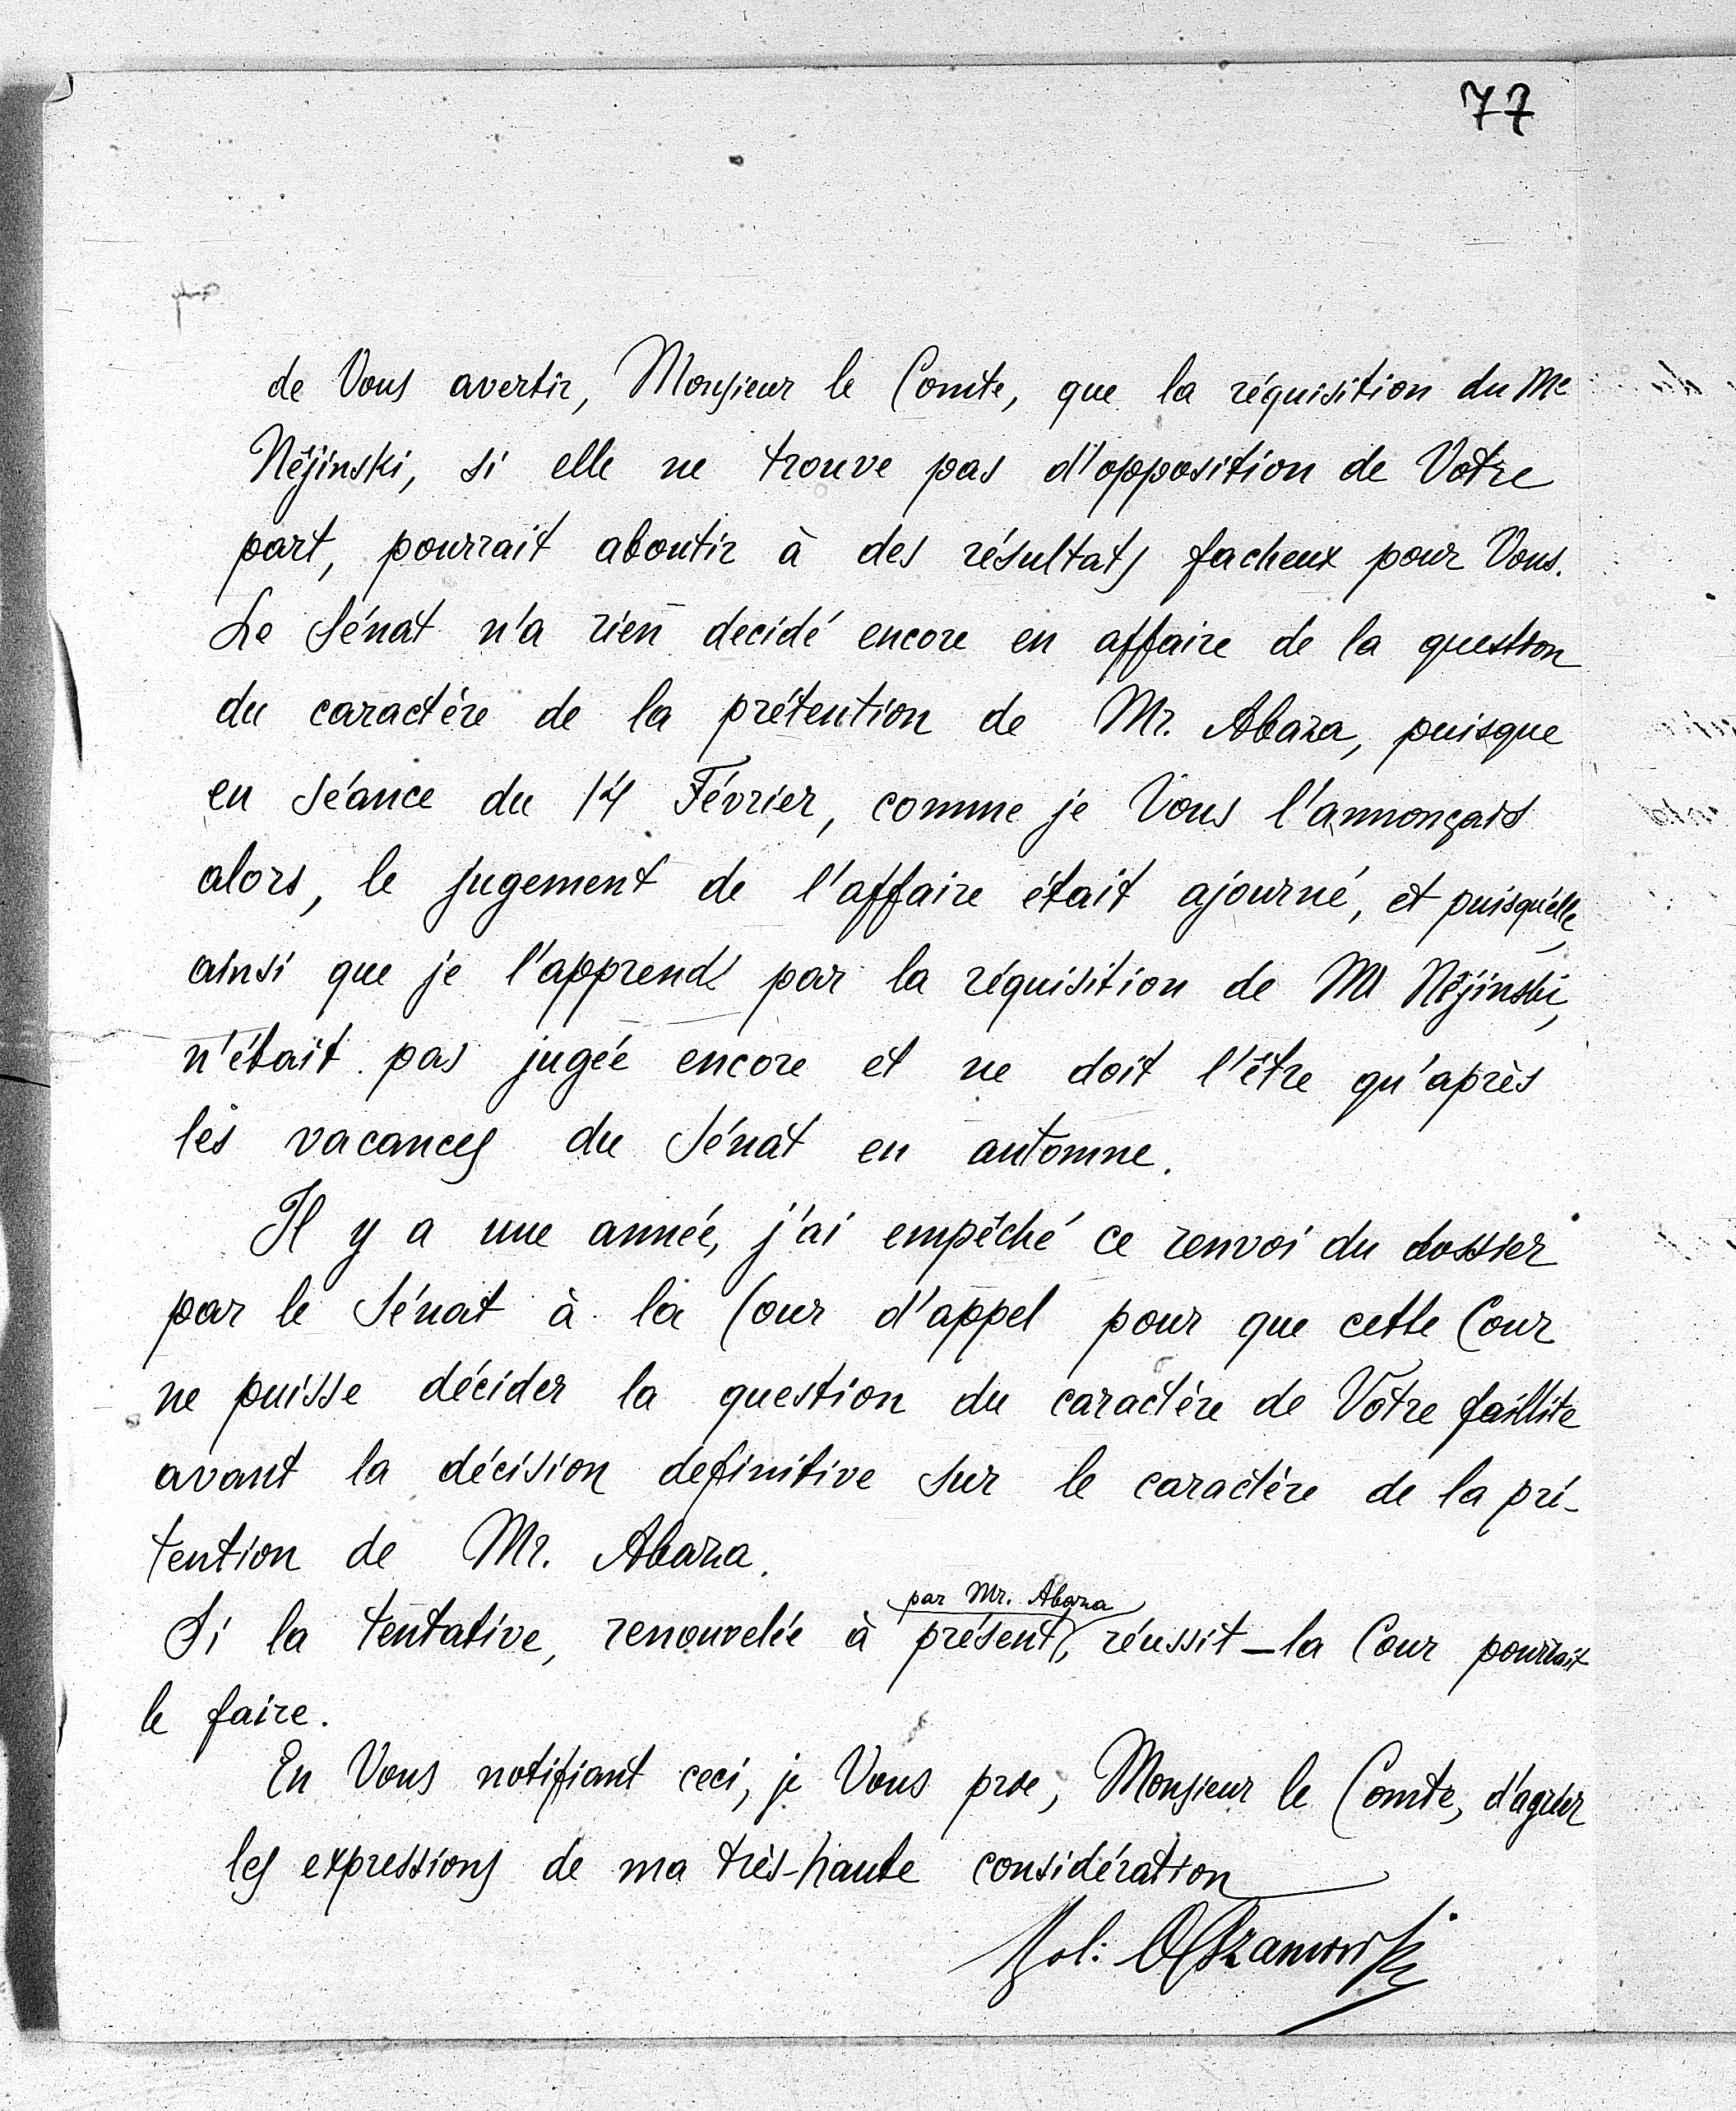 77
de Vous avertir, Monsieur le Comte, que la réquisition du Mc
Nêjinski, si elle ne trouve pas d'opposition de Votre
part, pourrait aboutir à des résultats facheux pour Vous.
Le Sénat n'a rien decidé encore en affaire de la question
du caractère de la prétention de Mr. Abaza, puisque
en séance du 14 Février, comme je Vous l'annonçais
alors, le jugement de l'affaire était ajourné, et puisqu'elle,
ainsi que je l'apprends par la réquisition de Mr Nêjinski,
n'était pas jugée encore et ne doit l'être qu'après
les vacances du Sénat en automne.
Il y a une année, j'ai empêché ce renvoi du dossier
par le Sénat à la Cour d'appel pour que cette Cour
ne puisse décider la question du caractère de Votre faillite
avant la décision definitive sur le caractère de la pré-
tention de Mr. Abaza.
par Mr. Abaza
Si la tentative, renouvelée à présent, réussit – la Cour pourrait
le faire.
En Vous notifiant ceci, je Vous prie, Monsieur le Comte, d'agréer
les expressions de ma très-haute considération